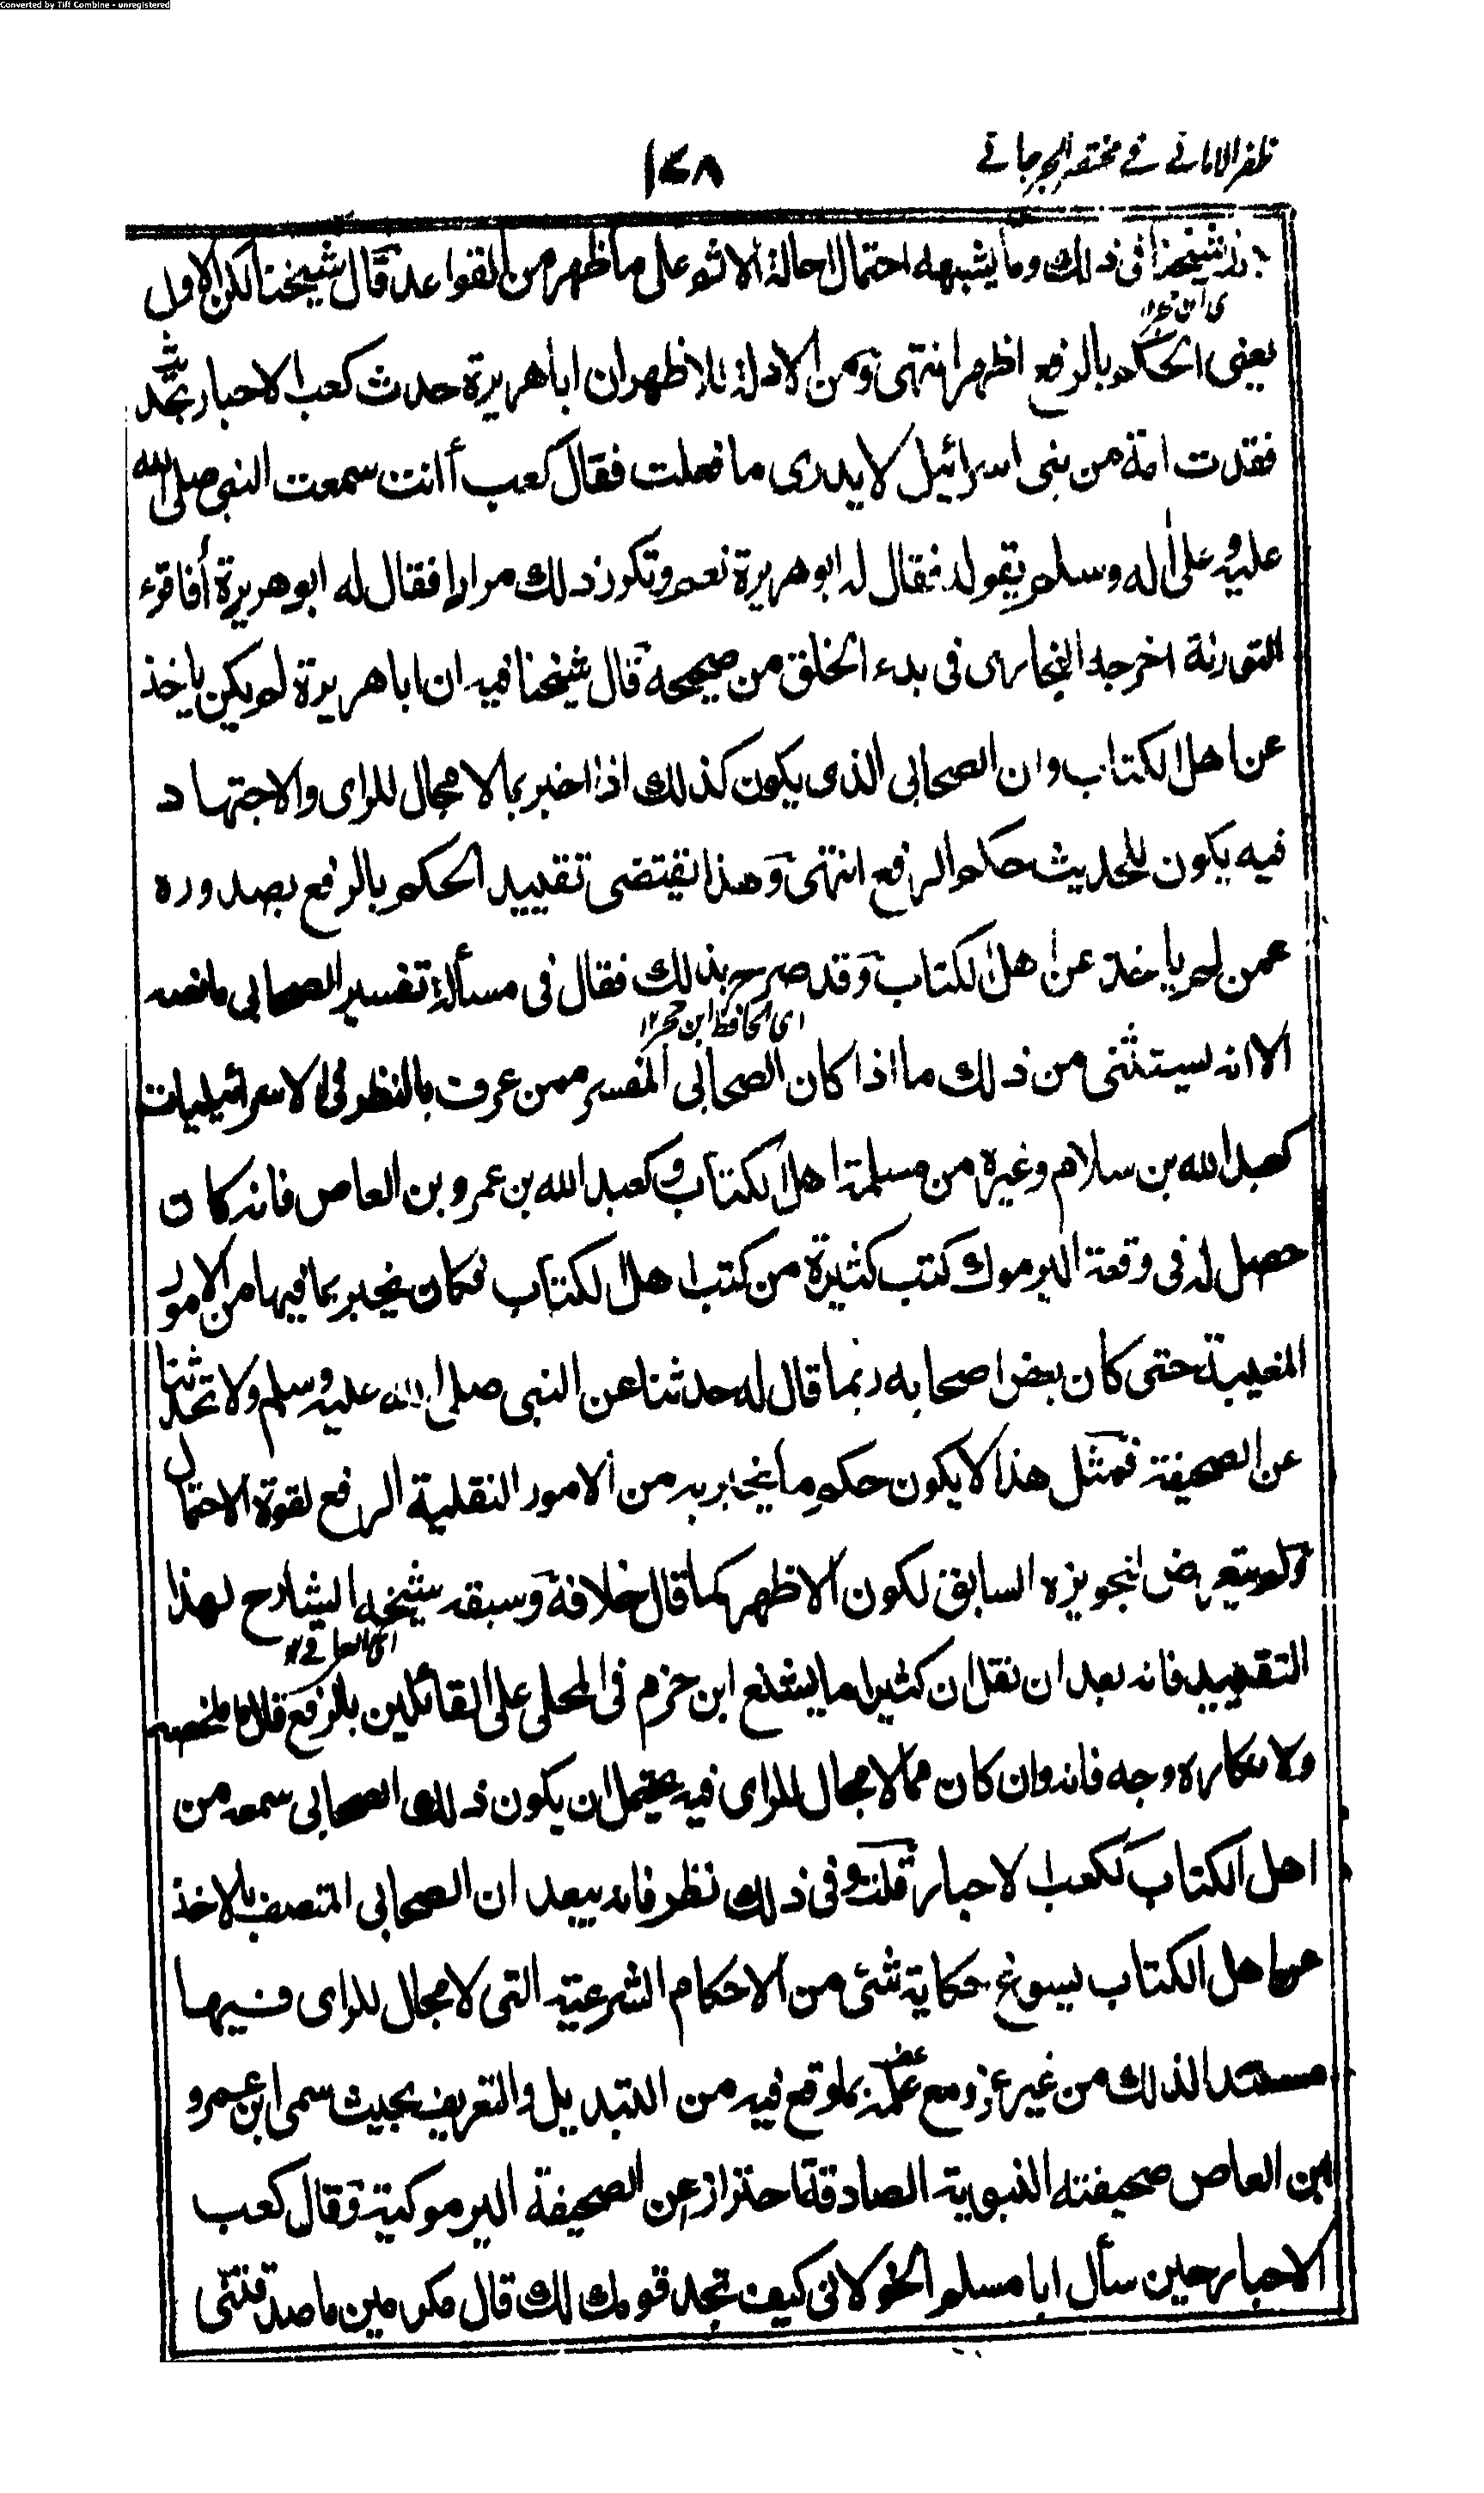 Converted by Tiff Combine - unregistered
ظفر الامانے فے مختصر الجرجانے
١٤٨
شيخنا فى ذلك وما يشبهه احتمال احالة الاثم على ما ظهر من القواعد قال شيخنا لكن الاول
يعنى الحكم بالرفع اظهر انتهى ومن الادلة للاظهر ان ابا هريرة حدث كعب الاحبار بحديث
فقدت امة من بنى اسرائيل لا يدرى ما فعلت فقال كعب أانت سمعت النبى صلى الله
عليه وعلى اله وسلم يقوله فقال له ابو هريرة نعم وتكرر ذلك مرارا فقال له ابو هريرة أفاقرء
التورىة اخرجه البخارى فى بدء الخلق من صحيحه قال شيخنا فيه ان ابا هريرة لم يكن ياخذ
عن اهل الكتاب وان الصحابى الذى يكون كذلك اذا اخبر بما لا مجال للراى والاجتهاد
فيه يكون للحديث حكم الرفع انتهى وهذا يقتضى تقييد الحكم بالرفع بصدوره
عمن لم ياخذ عن اهل الكتاب وقد صرح بذلك فقال فى مسألة تفسير الصحابى ما نصه
اى الحافظ ابن حجر ١٢
الا انه يستثنى من ذلك ما اذا كان الصحابى المفسر ممن عرف بالنظر فى الاسرائيليات
كعبد الله بن سلام وغيره من مسلمة اهل الكتاب وكعبد الله بن عمرو بن العاص فانه كان
حصل له فى وقعة اليرموك كتب كثيرة من كتب اهل الكتاب فكان يخبر بما فيها من الامور
المغيبة حتى كان بعض اصحابه ربما قال له حدثنا عن النبى صلى الله عليه وسلم ولا تحدثنا
عن الصحيفة فمثل هذا لا يكون حكم ما يخبر به من الامور النقلية الرفع لقوة الاحتمال
ولم يتعرض لتجويزه السابق لكون الاظهر كما قال خلافه وسبقه شيخه الشارح لهذا
اى العراقے ١٢
التقييد فانه بعد ان نقل ان كثيرا ما يشنع ابن حزم فى المحلى على القائلين بالرفع قال ما ملخصه
ولانكاره وجه فانه وان كان مما لا مجال للراى فيه يحتمل ان يكون ذلك الصحابى سمعه من
اهل الكتاب ككعب الاحبار قلت وفى ذلك نظر فانه يبعد ان الصحابى المتصف بالاخذ
عن اهل الكتاب يسوغ حكاية شئ من الاحكام الشرعية التى لا مجال للراى فيها
مستندا لذلك من غير عزو مع علمه بما وقع فيه من التبديل والتحريف بحيث سمى ابن عمرو
ابن العاص صحيفته النبوية الصادقة احترازا عن الصحيفة اليرموكية وقال كعب
الاحبار حين سأل ابا مسلم الخولانى كيف تجد قومك لك قال مكرمين ما صدقتنى